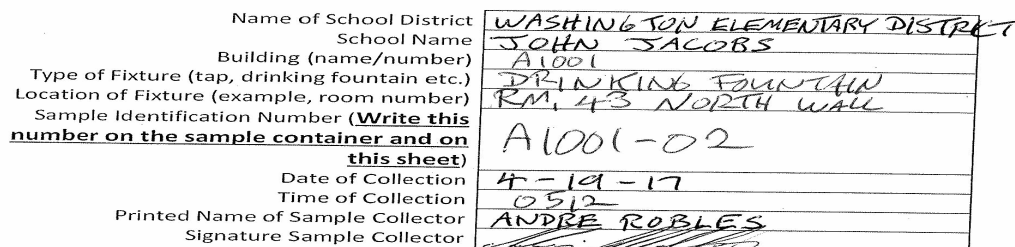 Name of School District WASHINGTON ELEMENTARY DISTRCT
School Name JOHN JACOBS
Building (name/number) A1001
Type of Fixture (tap, drinking fountain etc.) DRINKING FOUNTAIN
Location of Fixture (example, room number) RM, 43 NORTH WALL
Sample Identification Number (Write this
number on the sample container and on A1001-02
this sheet)
Date of Collection 4-19-17
Time of Collection 0512
Printed Name of Sample Collector ANDRE ROBLES
Signature Sample Collector